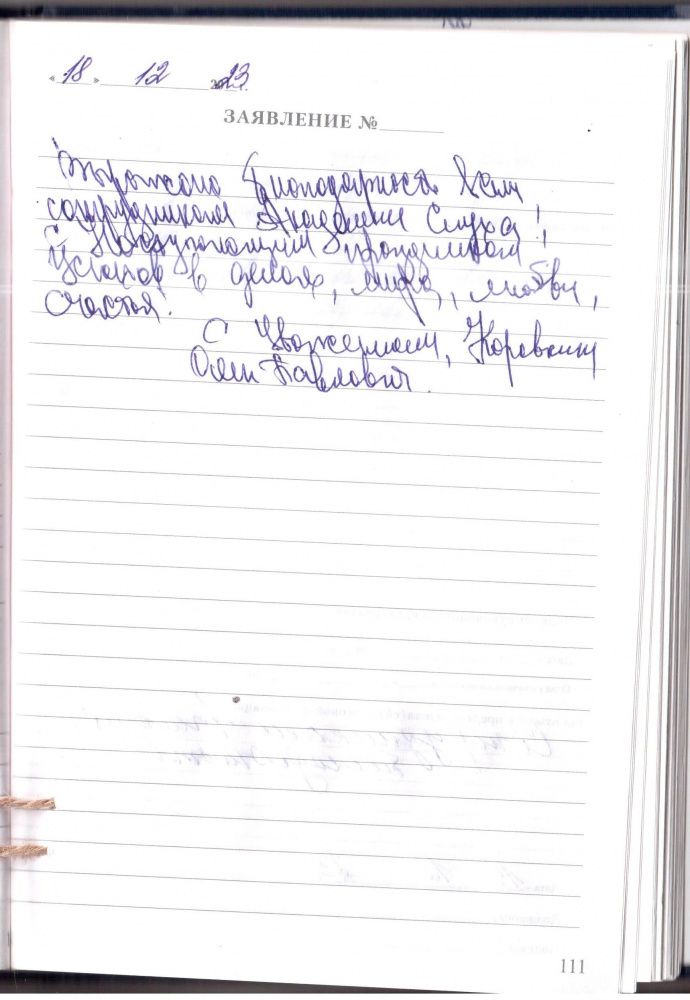 « 18 » 12 2023
ЗАЯВЛЕНИЕ №
Выражаю благодарность всем
сотрудникам Академии Слуха!
С Наступающим праздником!
Успехов в делах, мира, любви,
счастья!
С Уважением,
Павлович.
111